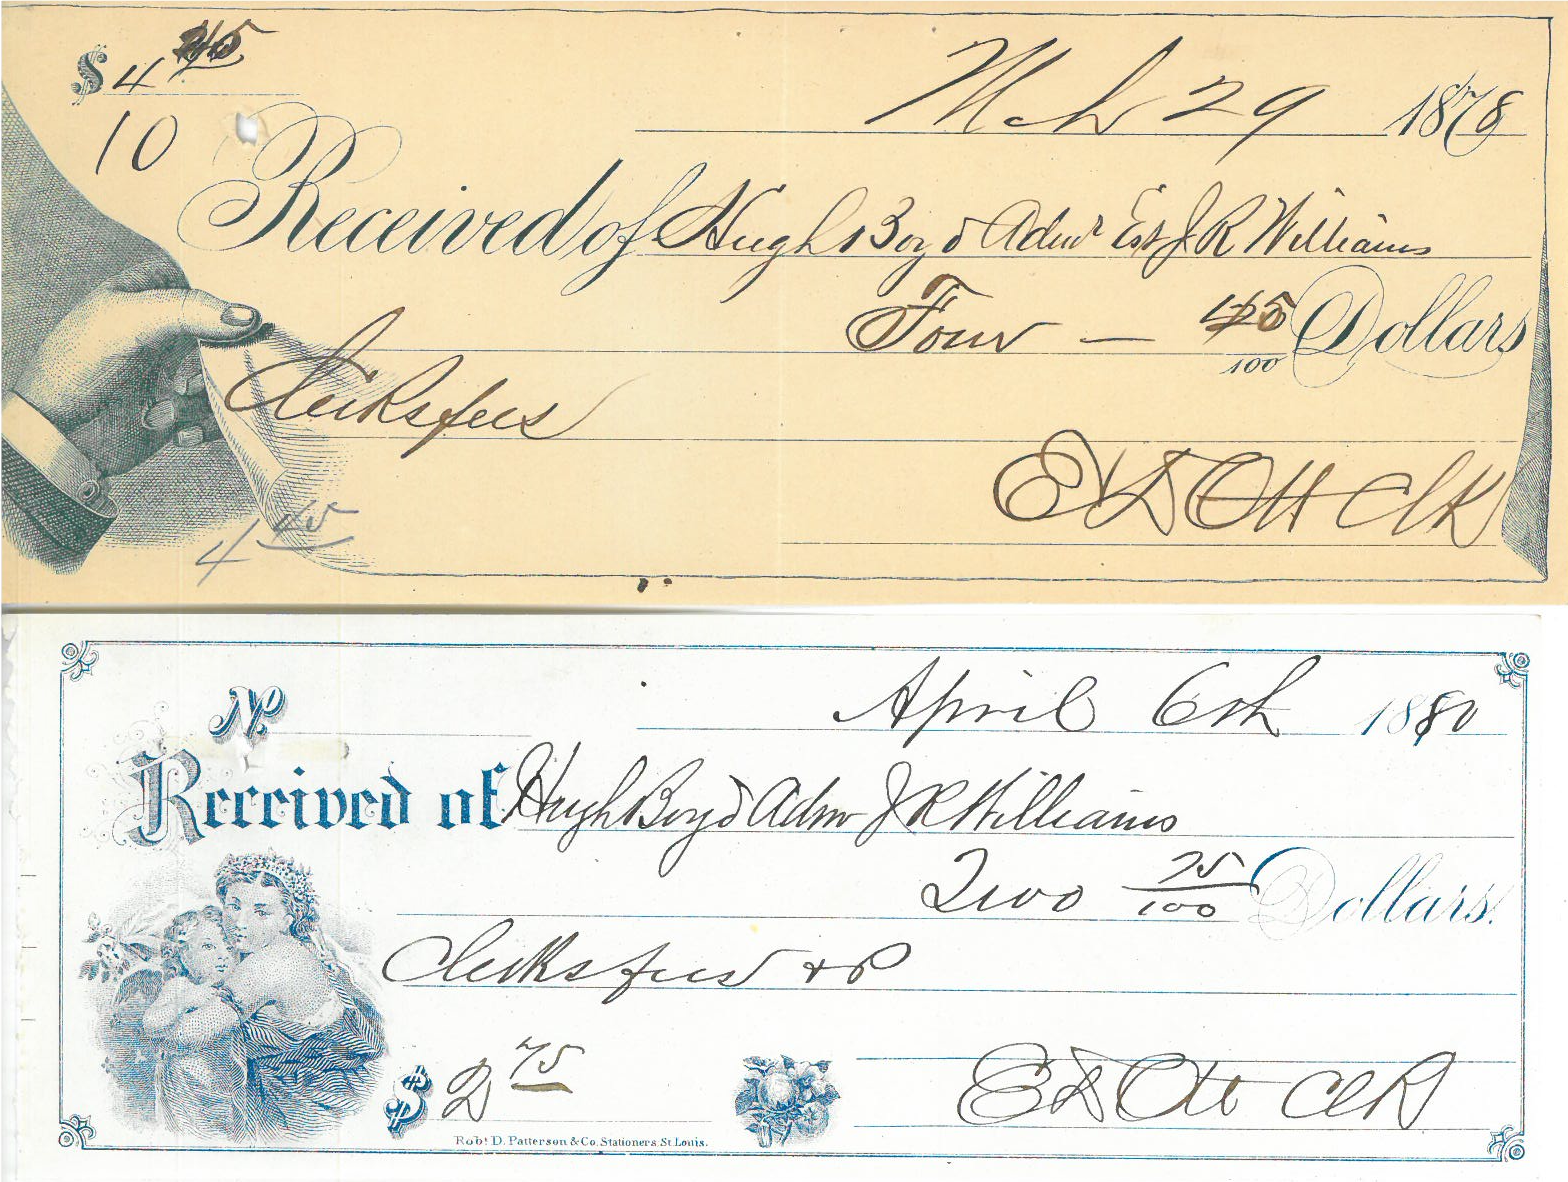 $ 4 45
Mch 29 1878
10
Received of Hugh Boyd Admr Est J R Williams
Four — 45/100 Dollars
Clerks fees
E D Ott Clk
4 45
No.
April 6th 1880
Received of Hugh Boyd Admr J R Williams
Two 75/100 Dollars.
Clerks fees &
$ 2 75
E D Ott Clk
Robt. D. Patterson & Co. Stationers. St. Louis.